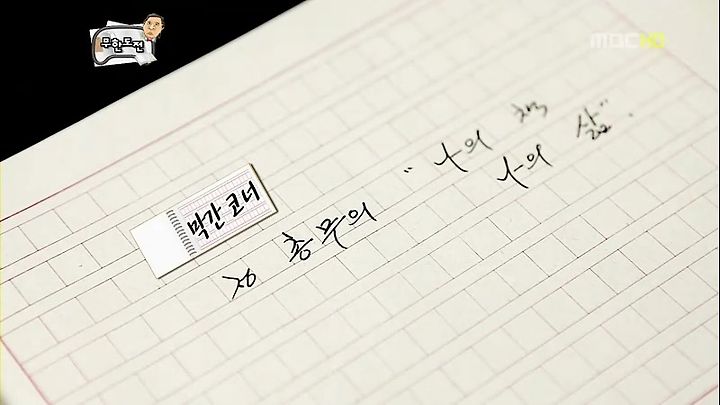 무한도전
MBC HD
막간 코너
정 총무의 "나의 책
나의 삶".